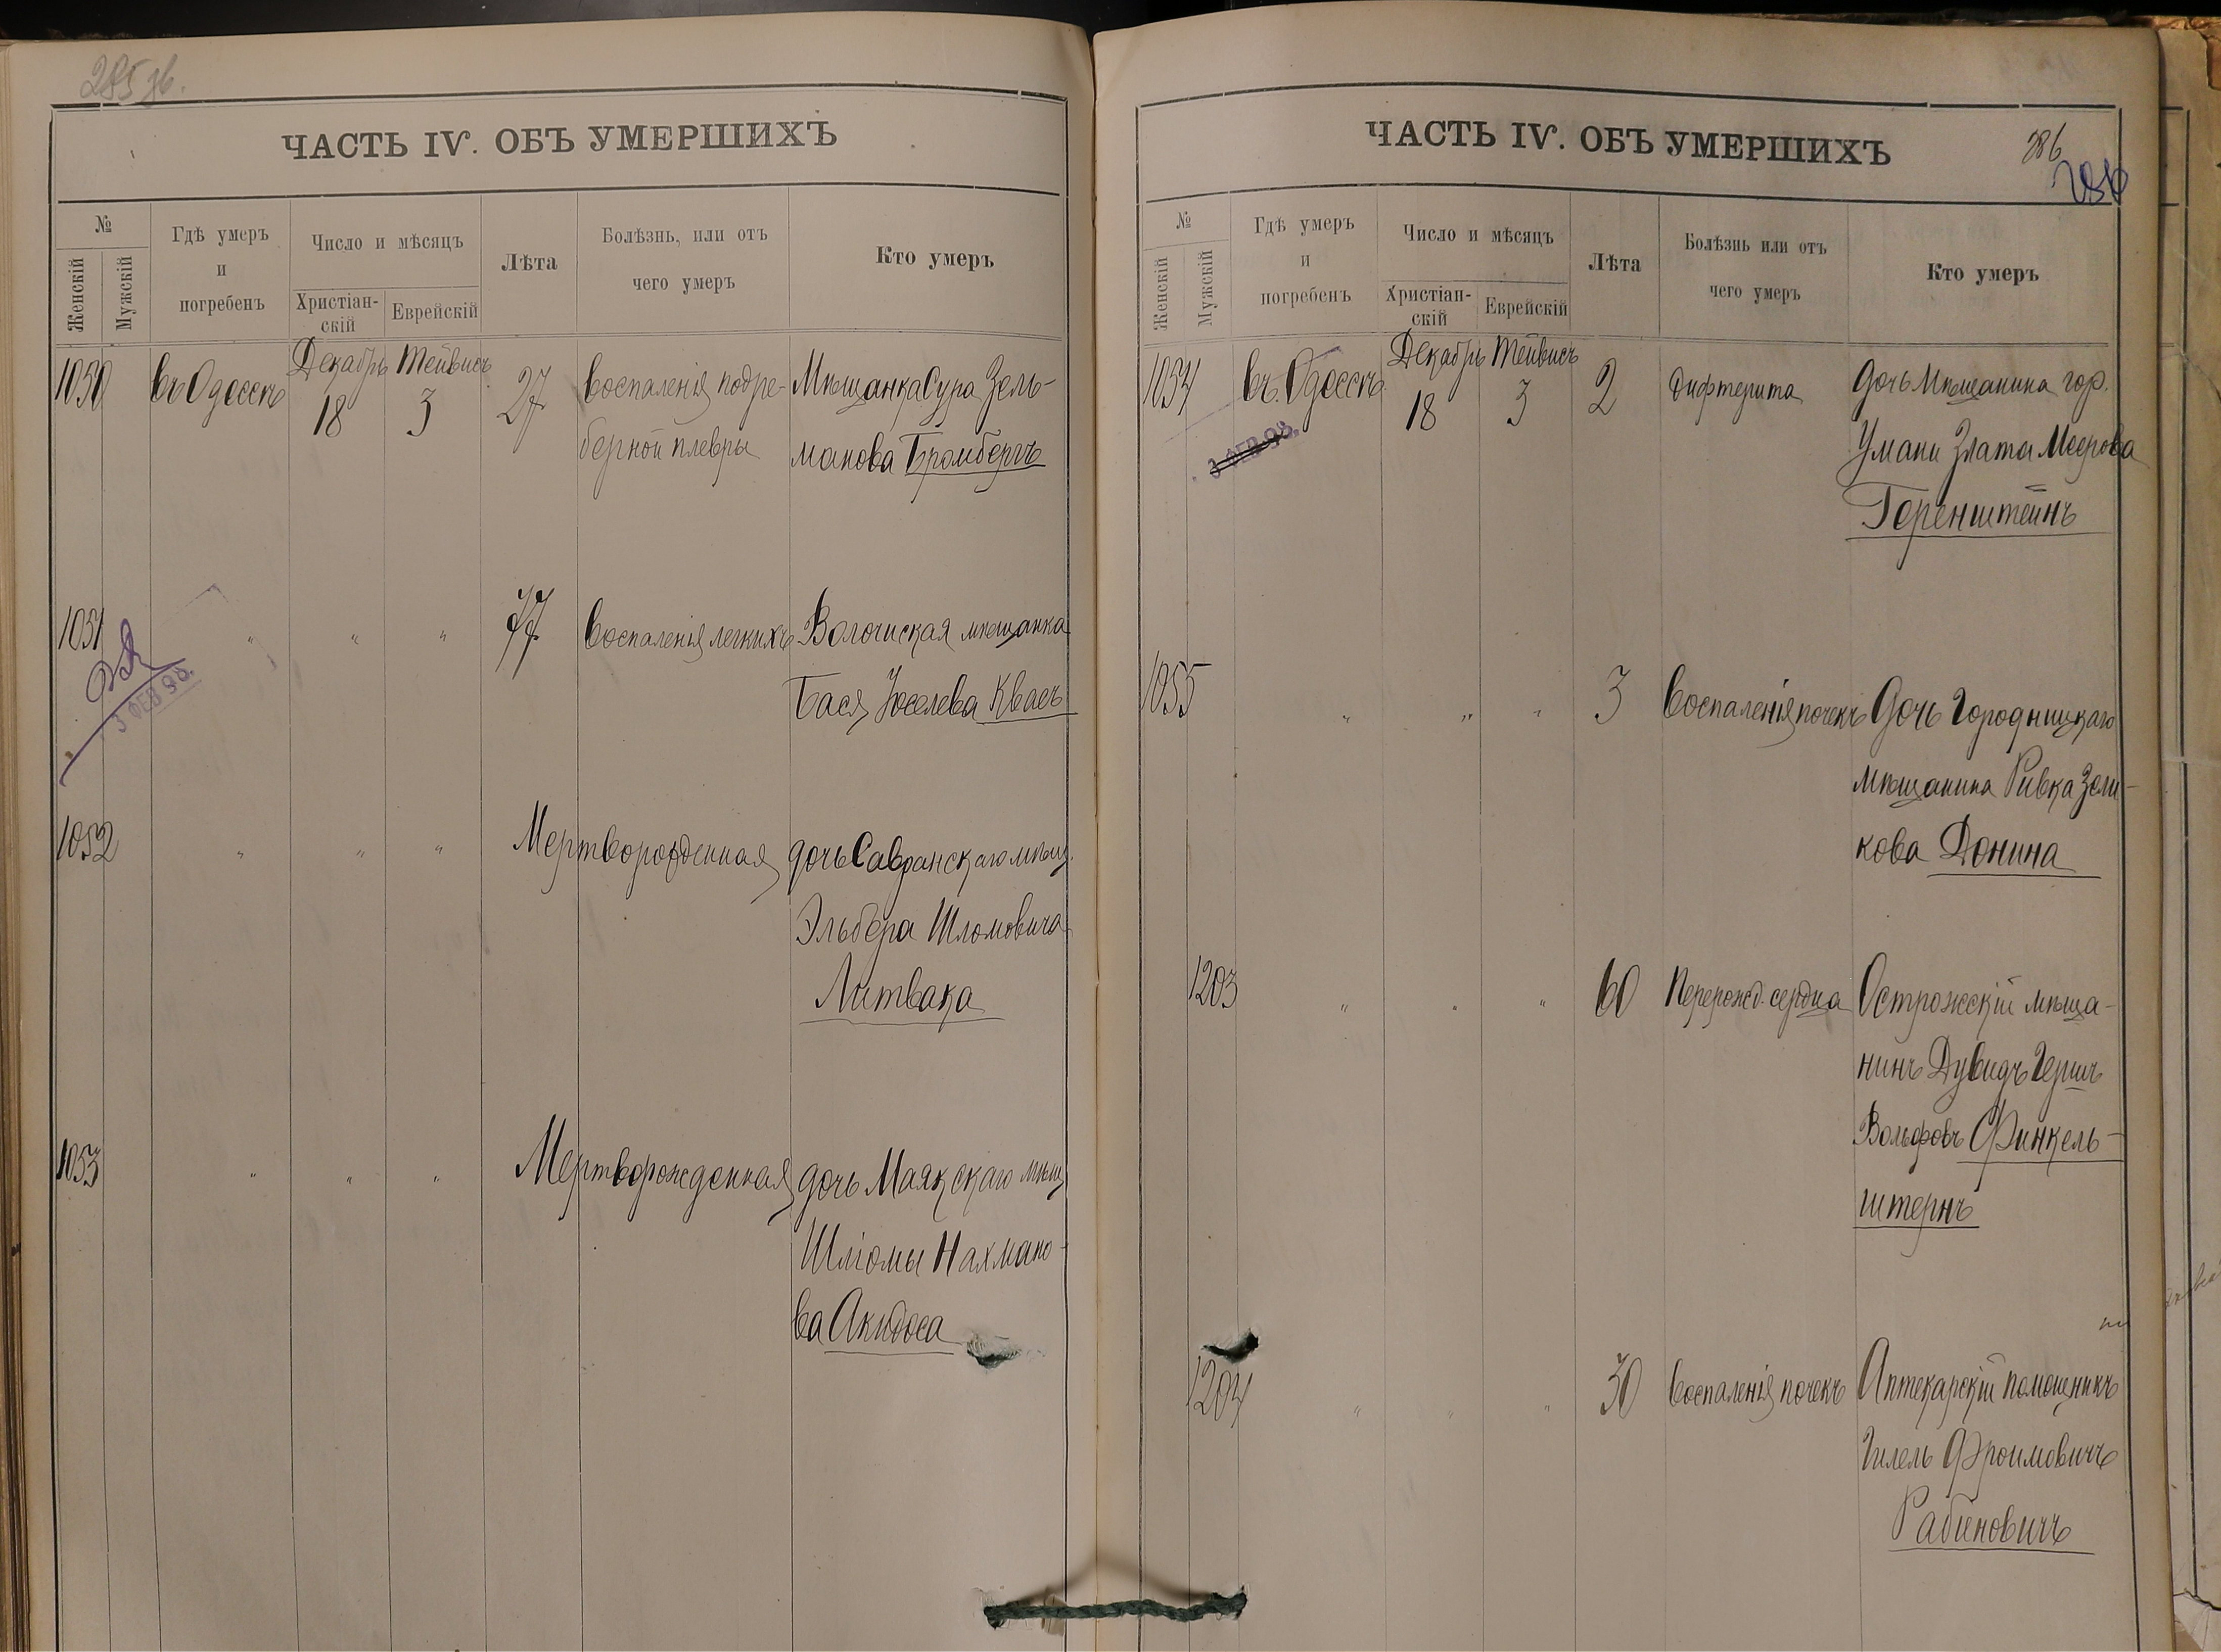 285 зв.
ЧАСТЬ IV. ОБЪ УМЕРШИХЪ
№
Женскій
Мужскій
Гдѣ умеръ
и
погребенъ
Число и мѣсяцъ
Христіан-
скій
Еврейскій
Лѣта
Болѣзнь, или отъ
чего умеръ
Кто умеръ
1050 въ Одессѣ Декабрь 18 Тейвисъ 3 27 воспаленія подре- Мѣщанка Сура Зель-
берной плевры манова Бромбергъ
1051 " " " 77 воспаленія легкихъ Волочиская мѣщанка
3 ФЕВ 98.
Бася Іоселева Квасъ
1052 " " " Мертворожденная дочь Савранскаго мѣщ.
Эльбера Шломовича
Литвака
1053 " " " Мертворожденная дочь Маякскаго мѣщ
Шліомы Нахмано-
ва Акидоса
ЧАСТЬ IV. ОБЪ УМЕРШИХЪ
286
286
№
Женскій
Мужскій
Гдѣ умеръ
и
погребенъ
Число и мѣсяцъ
Христіан-
скій
Еврейскій
Лѣта
Болѣзнь или отъ
чего умеръ
Кто умеръ
1054 въ Одессѣ Декабрь 18 Тейвисъ 3 2 дифтерита дочь Мѣщанина гор.
3 ФЕВ 98.
Умани Злата Меерова
Геренштейнъ
1055 " " " 3 воспаленія почекъ Дочь Городницкаго
мѣщанина Ривка Зели-
кова Донина
1203 " " " 60 Перерожд. сердца Острожскій мѣща-
нинъ Дувидъ Гершъ
Вольфовъ Финкель-
штернъ
1204 " " " 30 воспаленія почекъ Аптекарскій помощникъ
Гилель Фроимовичъ
Рабиновичъ